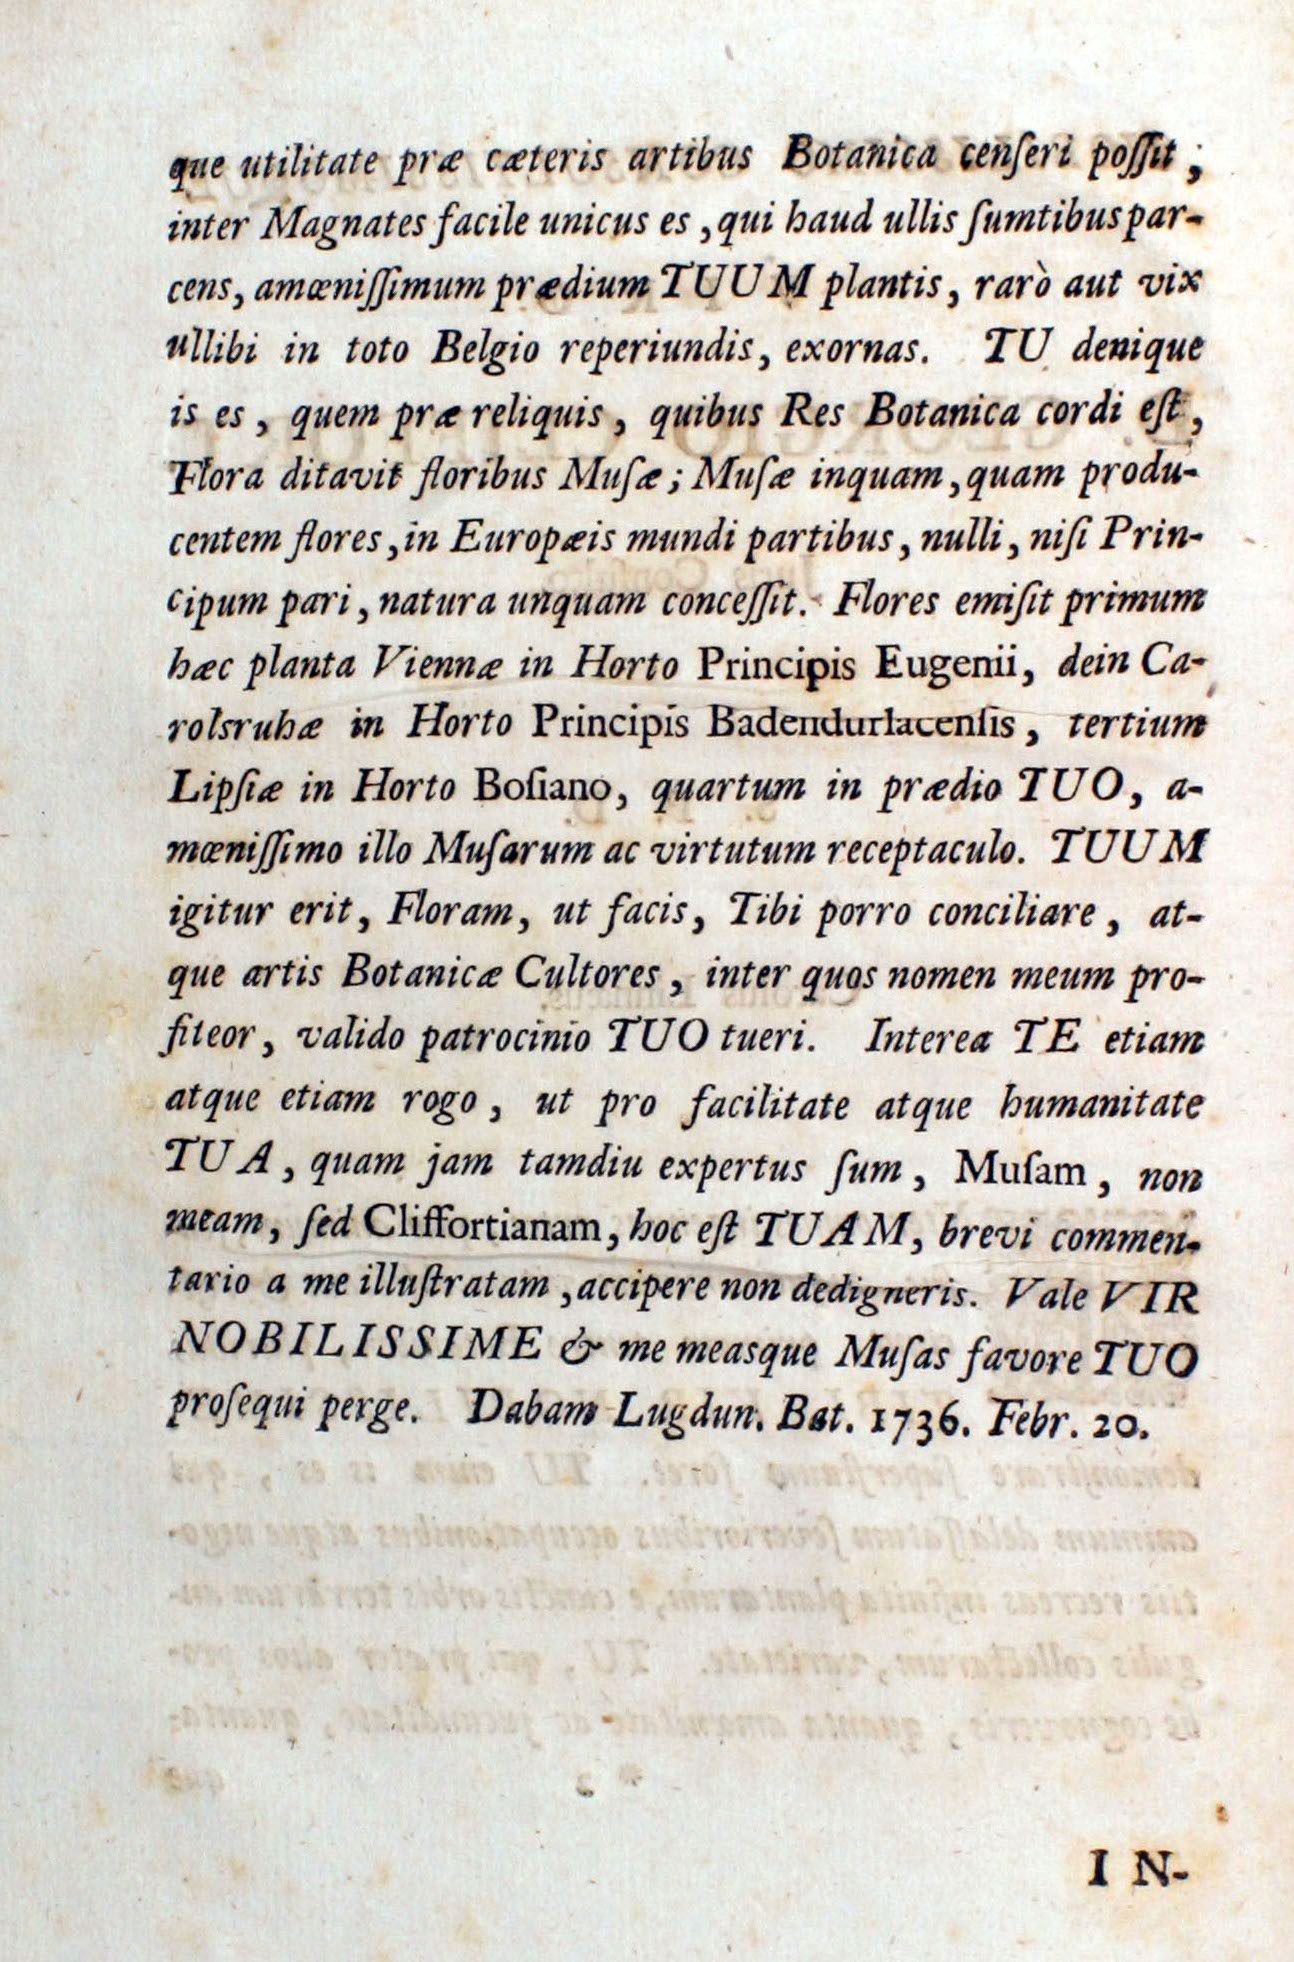 que utilitate præ cæteris artibus Botanica cenſeri poſſit;
inter Magnates facile unicus es, qui haud ullis ſumtibus par-
cens, amœniſſimum prædium TUUM plantis, rarò aut vix
ullibi in toto Belgio reperiundis, exornas. TU denique
is es, quem præ reliquis, quibus Res Botanica cordi eſt,
Flora ditavit floribus Muſæ; Muſæ inquam, quam produ-
centem flores, in Europæis mundi partibus, nulli, niſi Prin-
cipum pari, natura unquam conceſſit. Flores emiſit primum
hæc planta Viennæ in Horto Principis Eugenii, dein Ca-
rolsruhæ in Horto Principis Badendurlacenſis, tertium
Lipſiæ in Horto Boſiano, quartum in prædio TUO, a-
mœniſſimo illo Muſarum ac virtutum receptaculo. TUUM
igitur erit, Floram, ut facis, Tibi porro conciliare, at-
que artis Botanicæ Cultores, inter quos nomen meum pro-
fiteor, valido patrocinio TUO tueri. Interea TE etiam
atque etiam rogo, ut pro facilitate atque humanitate
TUA, quam jam tamdiu expertus ſum, Muſam, non
meam, ſed Cliffortianam, hoc eſt TUAM, brevi commen-
tario a me illuſtratam, accipere non dedigneris. Vale VIR
NOBILISSIME & me measque Muſas favore TUO
proſequi perge. Dabam Lugdun. Bat. 1736. Febr. 20.
IN-